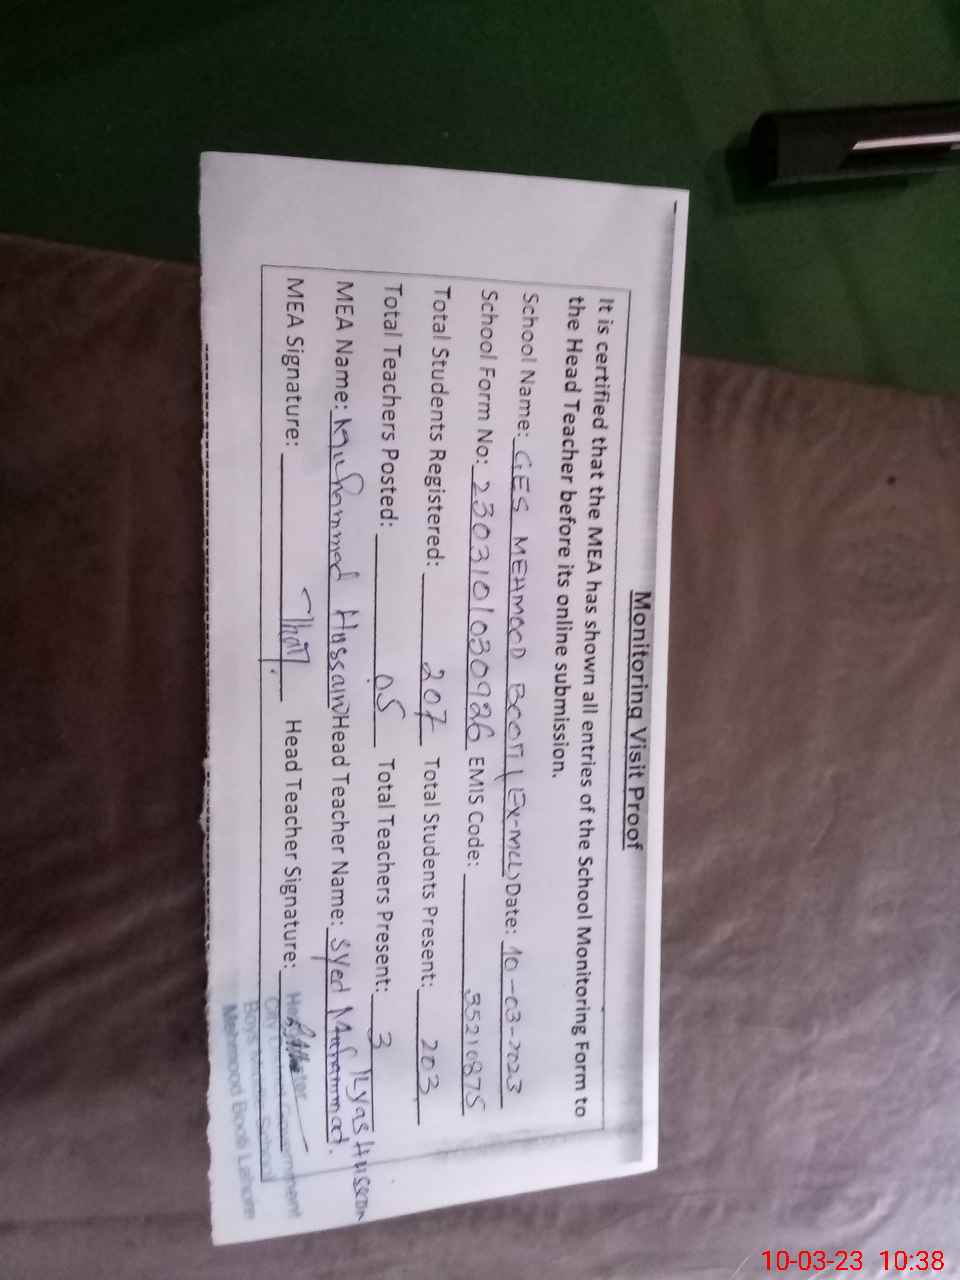 Monitoring Visit Proof
It is certified that the MEA has shown all entries of the School Monitoring Form to
the Head Teacher before its online submission.
School Name: GES MEHMOOD BOOTI (Ex-MCL) Date: 10-03-2023
School Form No: 2303101030926 EMIS Code: 35210875
Total Students Registered: 207 Total Students Present: 203
Total Teachers Posted: 05 Total Teachers Present: 3
MEA Name: Muhammad Hussain Head Teacher Name: Syed Muhammad Ilyas Hussain
MEA Signature: Head Teacher Signature:
Boys School
Mehmood Booti Lahore
10-03-23 10:38